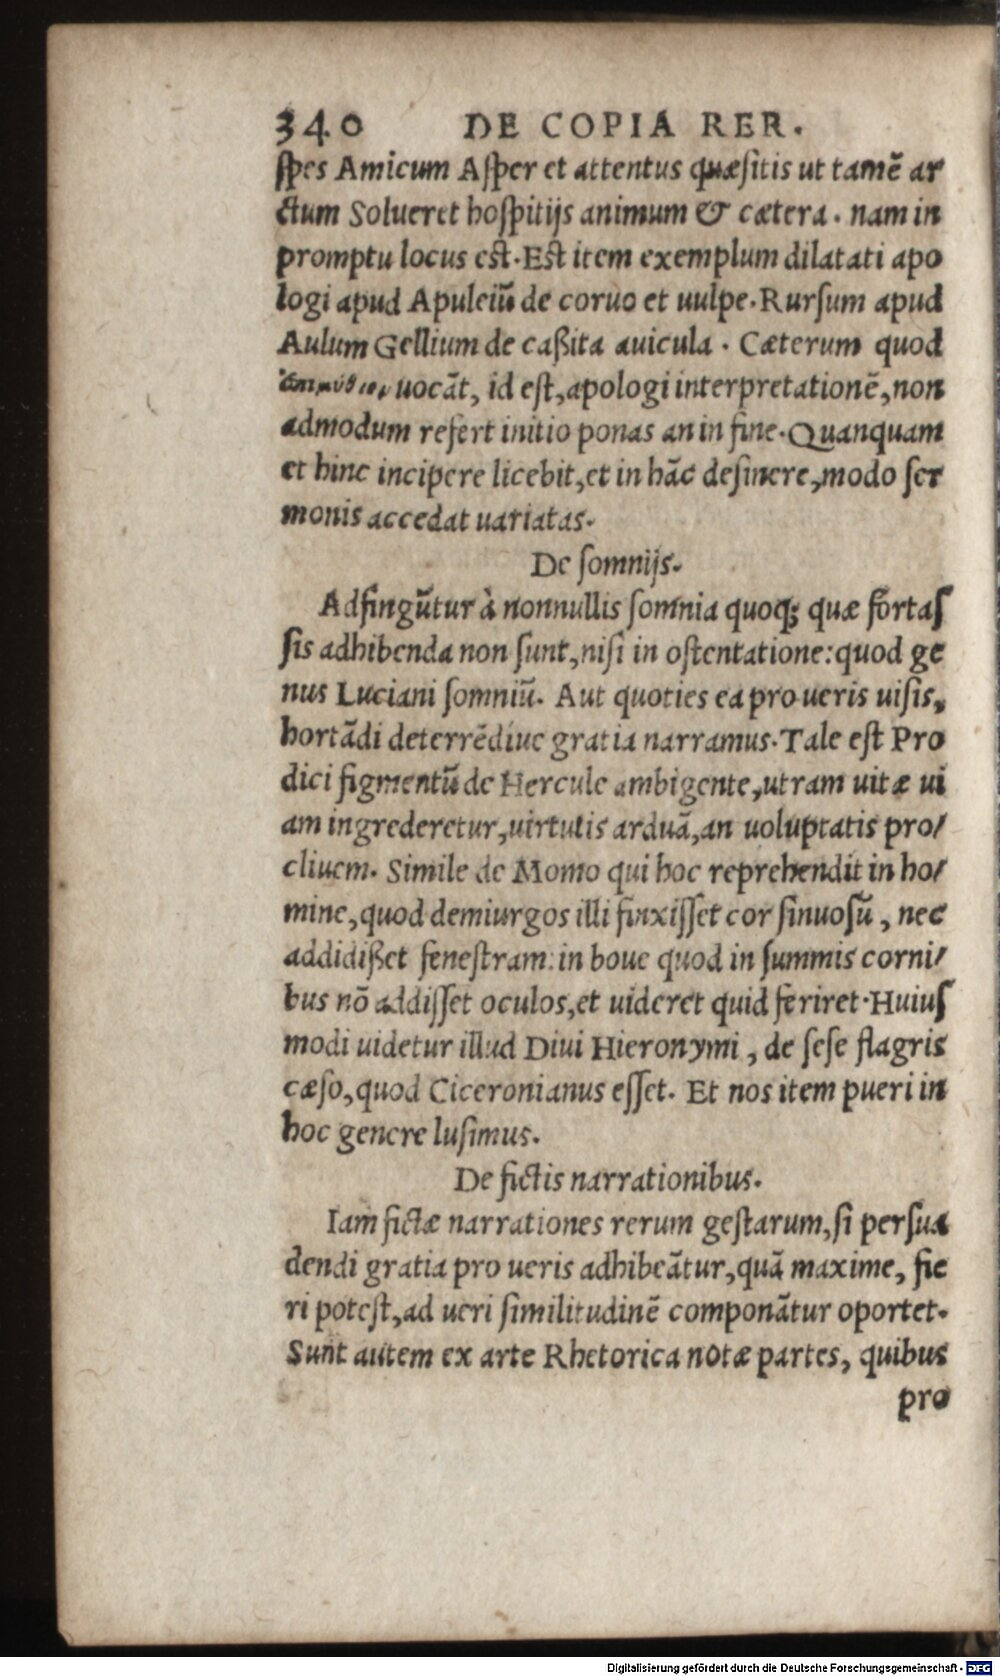 340 DE COPIA RER.
spes Amicum Asper et attentus quæsitis ut tamẽ ar
ctum Solueret hospitijs animum & cætera. nam in
promptu locus est. Est item exemplum dilatati apo
logi apud Apuleiũ de coruo et uulpe. Rursum apud
Aulum Gellium de caßita auicula. Cæterum quod
uocãt, id est, apologi interpretationẽ, non
admodum refert initio ponas an in fine. Quanquam
et hinc incipere licebit, et in hãc desinere, modo ser
monis accedat uariatas.
De somnijs.
Adfingũtur à nonnullis somnia quoq; quæ fortas
sis adhibenda non sunt, nisi in ostentatione: quod ge
nus Luciani somniũ. Aut quoties ea pro ueris uisis,
hortãdi deterrẽdiue gratia narramus. Tale est Pro
dici figmentũ de Hercule ambigente, utram uitæ ui
am ingrederetur, uirtutis arduã, an uoluptatis pro/
cliuem. Simile de Momo qui hoc reprehendit in ho/
mine, quod demiurgos illi finxisset cor sinuosũ, nec
addidißet fenestram: in boue quod in summis corni/
bus nõ addisset oculos, et uideret quid feriret. Huius
modi uidetur illud Diui Hieronymi, de sese flagris
cæso, quod Ciceronianus esset. Et nos item pueri in
hoc genere lusimus.
De fictis narrationibus.
Iam fictæ narrationes rerum gestarum, si persua
dendi gratia pro ueris adhibeãtur, quã maxime, fie
ri potest, ad ueri similitudinẽ componãtur oportet.
Sunt autem ex arte Rhetorica notæ partes, quibus
pro
Digitalisierung gefördert durch die Deutsche Forschungsgemeinschaft - DFG